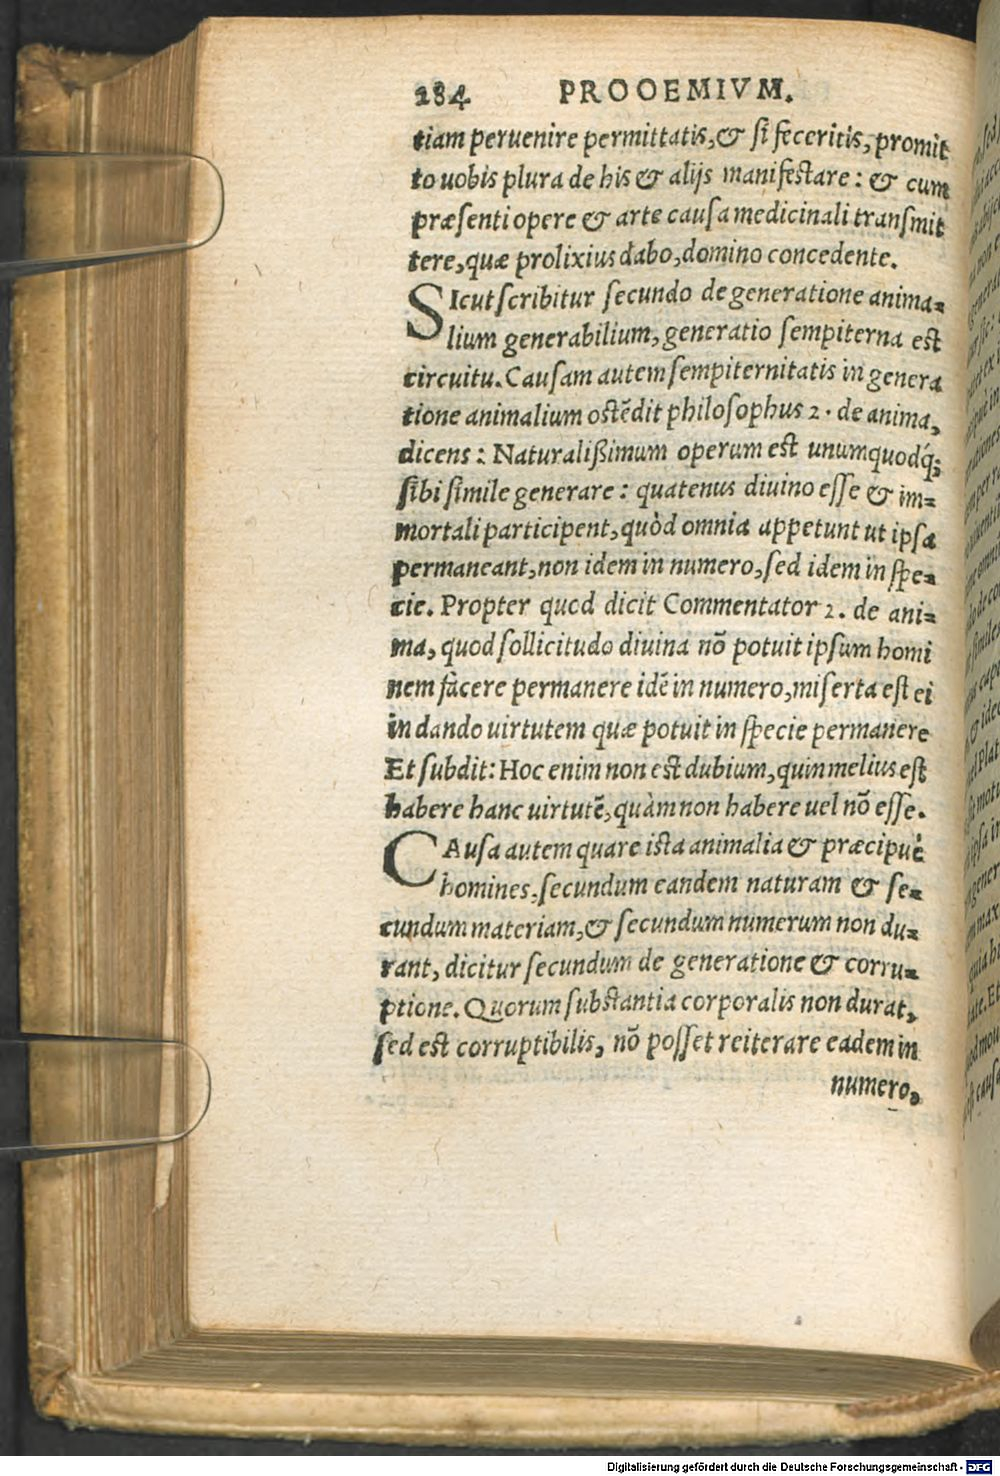 284 PROOEMIVM.
tiam peruenire permittatis, & si feceritis, promit
to uobis plura de his & alijs manifestare: & cum
præsenti opere & arte causa medicinali transmit
tere, quæ prolixius dabo, domino concedente.
SIcut scribitur secundo de generatione anima=
lium generabilium, generatio sempiterna est
circuitu. Causam autem sempiternitatis in genera
tione animalium ostẽdit philosophus 2. de anima,
dicens: Naturalißimum operum est unumquodq́;
sibi simile generare: quatenus diuino esse & im=
mortali participent, quòd omnia appetunt ut ipsa
permaneant, non idem in numero, sed idem in spe=
cie. Propter quod dicit Commentator 2. de ani=
ma, quod sollicitudo diuina nõ potuit ipsum homi
nem facere permanere idẽ in numero, miserta est ei
in dando uirtutem quæ potuit in specie permanere
Et subdit: Hoc enim non est dubium, quin melius est
habere hanc uirtutẽ, quàm non habere uel nõ esse.
CAusa autem quare ista animalia & præcipuè
homines, secundum eandem naturam & se=
cundum materiam, & secundum numerum non du=
rant, dicitur secundum de generatione & corru=
ptione. Quorum substantia corporalis non durat,
sed est corruptibilis, nõ posset reiterare eadem in
numero,
Digitalisierung gefördert durch die Deutsche Forschungsgemeinschaft - DFG